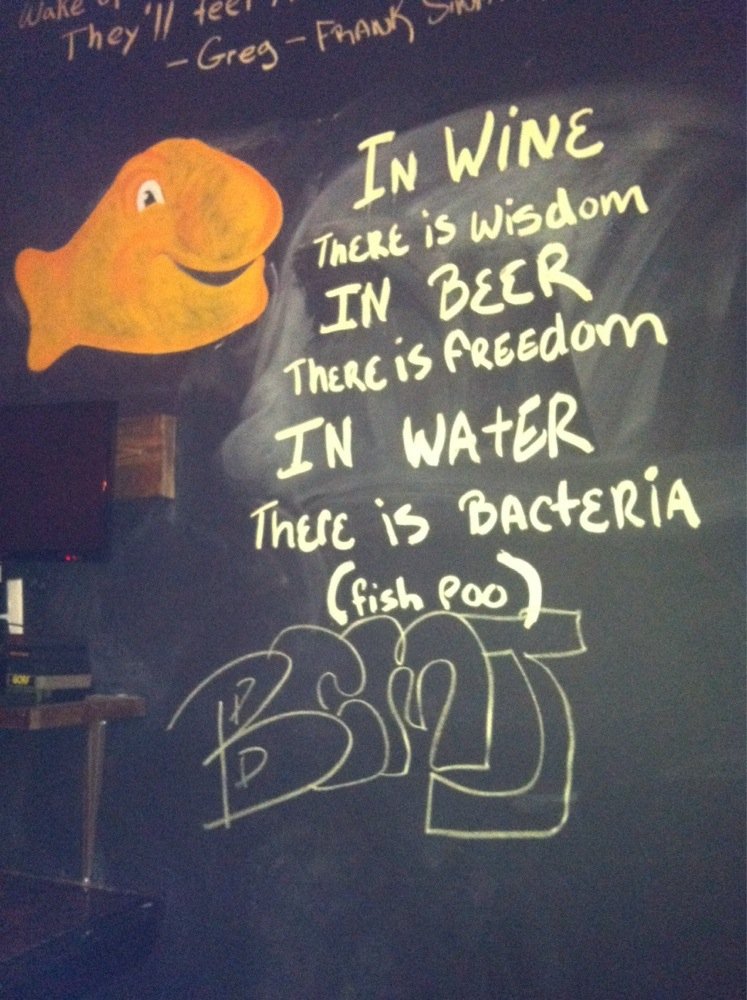 Wake
They'll feel
- Greg - FRANK
IN WINE
THERE is wisdom
IN BEER
THERE is FREEdom
IN WAtER
THERE is BACtERiA
(fish Poo)